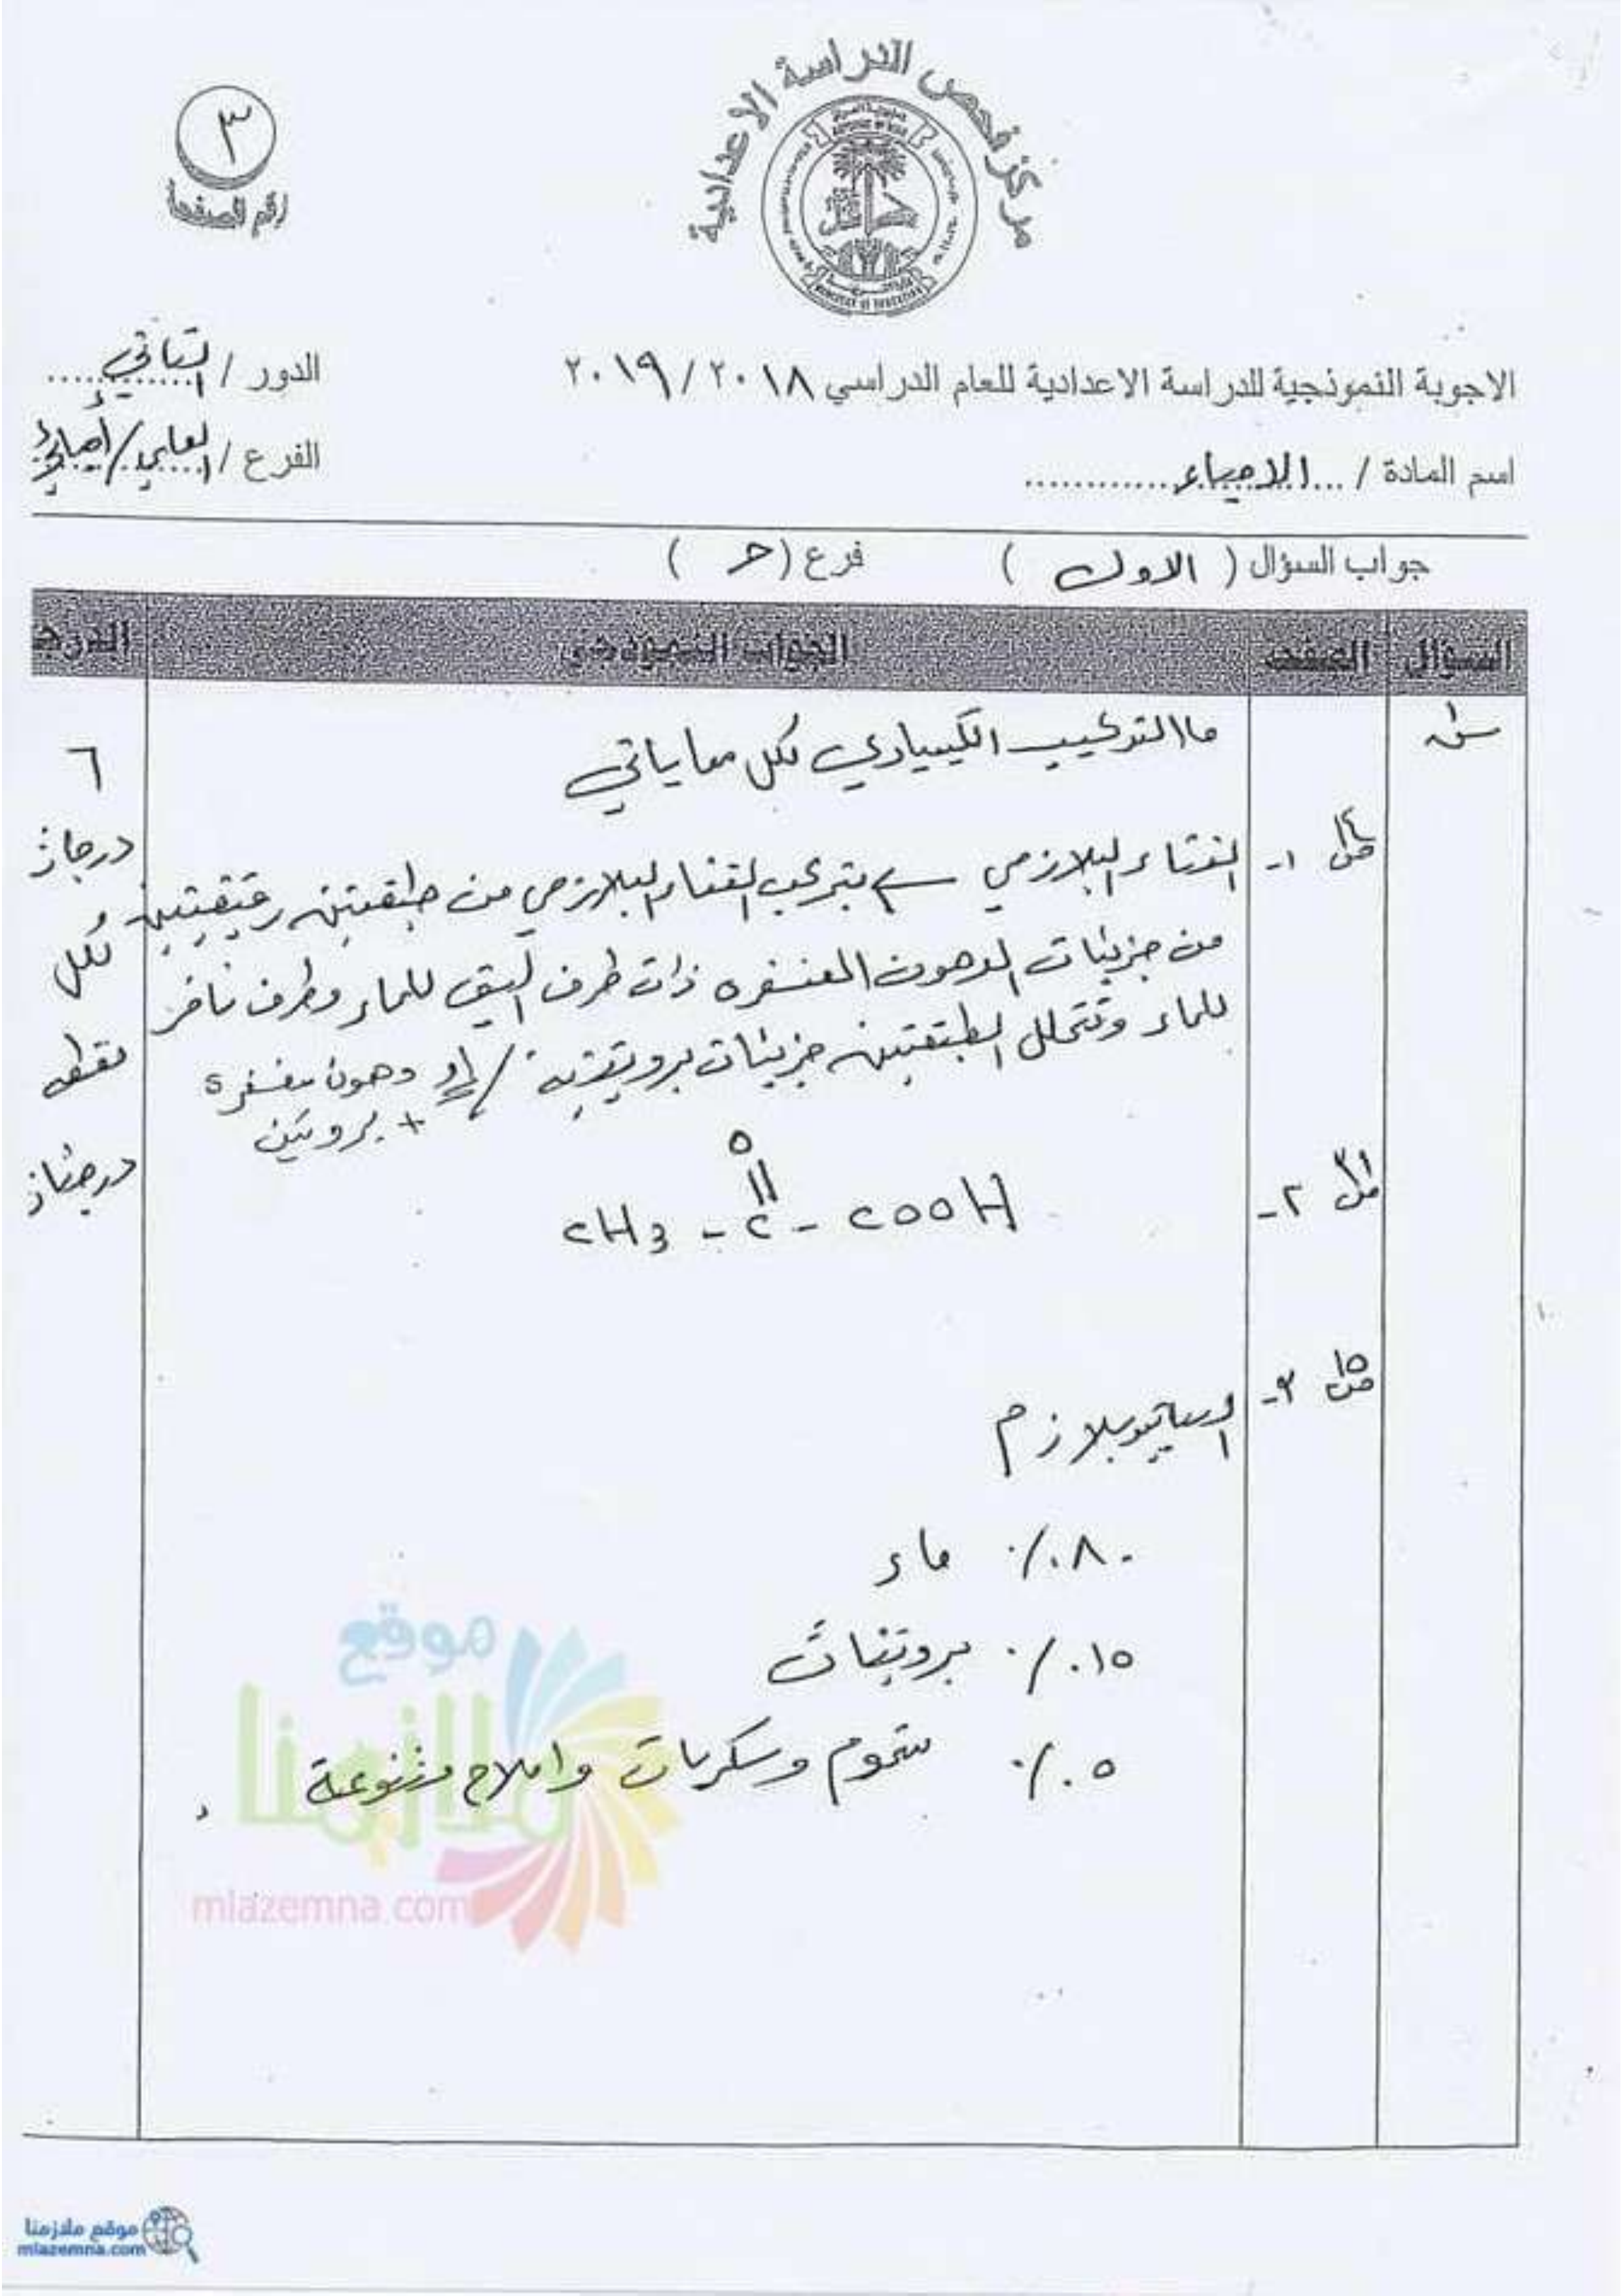 مركز فحص الدراسة الاعدادية
٣
رقم الصفحة
الاجوبة النموذجية للدراسة الاعدادية للعام الدراسي ٢٠١٨ / ٢٠١٩
الدور / الثاني
اسم المادة / الاحياء
الفرع / العلمي / احيائي
جواب السؤال ( الاول ) فرع ( حـ )
السؤال الصفحة الجواب النموذجي الدرجة
س١
ما التركيب الكيميائي لكل مما ياتي
٦
درجات
لكل
نقطة
درجتان
١- الغشاء البلازمي يتركب الغشاء البلازمي من طبقتين رقيقتين
من جزيئات الدهون المفسفره ذات طرف اليق للماء وطرف نافر
للماء وتتخلل الطبقتين جزيئات بروتينية / او دهون مفسفرة
+ بروتين
٢-
O
||
CH3 - C - COOH
ص ١٥
٣- السايتوبلازم
٨٠٪ ماء
١٥٪ بروتينات
٥٪ شحوم وسكريات واملاح متنوعة
موقع
ملازمنا
mlazemna.com
موقع ملازمنا
mlazemna.com